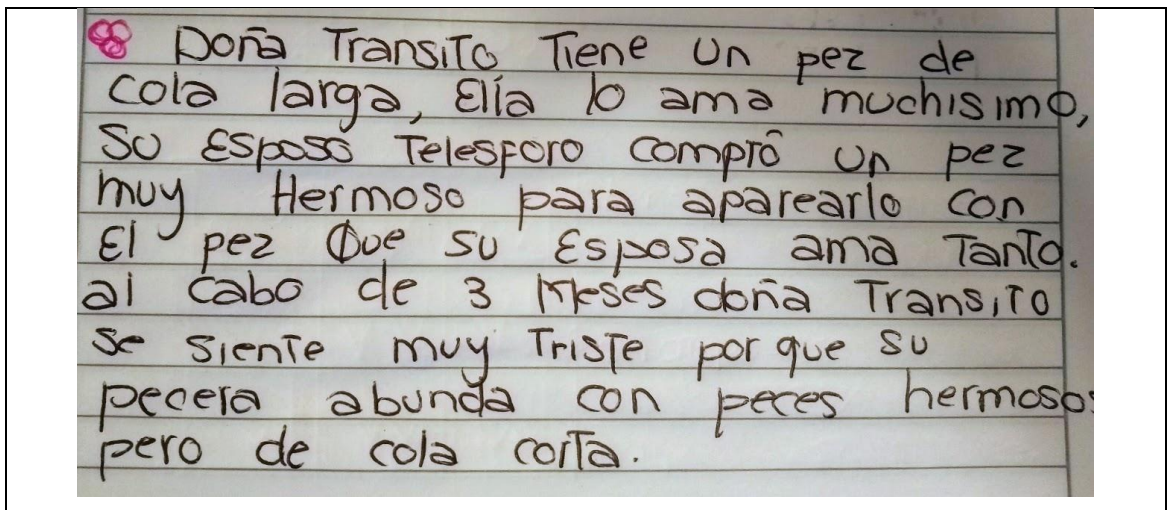 Doña Transito Tiene un pez de
cola larga, Ella lo ama muchisimo,
su Esposo Telesforo compró un pez
muy Hermoso para aparearlo con
El pez Que su Esposa ama Tanto.
al cabo de 3 Meses doña Transito
se siente muy Triste por que su
pecera abunda con peces hermosos
pero de cola corta.